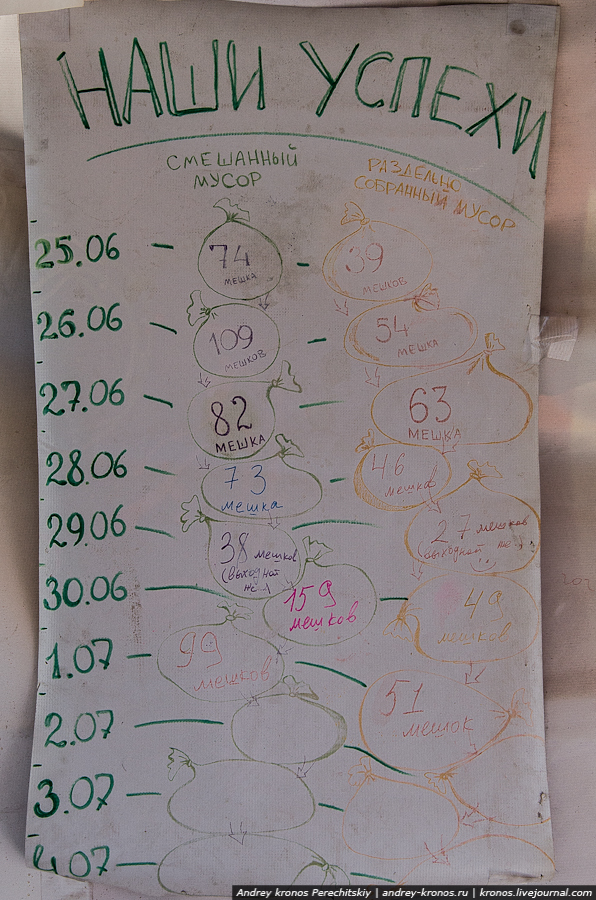 НАШИ УСПЕХИ
СМЕШАННЫЙ
МУСОР
РАЗДЕЛЬНО
СОБРАННЫЙ МУСОР
25.06 — 74 — 39
МЕШКА МЕШКОВ
26.06 — 109 — 54
МЕШКОВ МЕШКА
27.06 — 82 — 63
МЕШКА МЕШКА
28.06 — 73 — 46
мешка мешков
29.06 — 38 мешков — 27 мешков
(выходной же..) (выходной же..)
30.06 — 159 — 49
мешков мешков
1.07 — 99 — 51
мешков мешок
2.07 —
3.07 — —
4.07 — —
Andrey kronos Perechitskiy | andrey-kronos.ru | kronos.livejournal.com